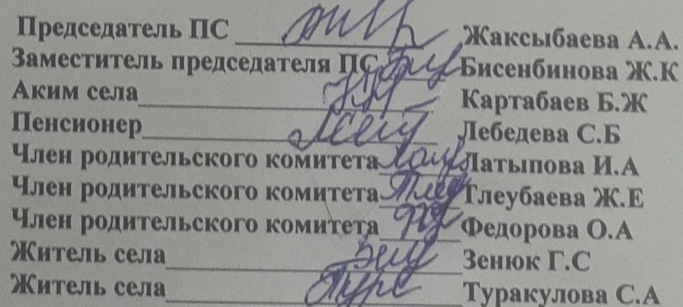 Председатель ПС ______________ Жаксыбаева А.А.
Заместитель председателя ПС______Бисенбинова Ж.К
Аким села______________________ Картабаев Б.Ж
Пенсионер______________________ Лебедева С.Б
Член родительского комитета______Латыпова И.А
Член родительского комитета______Тлеубаева Ж.Е
Член родительского комитета______Федорова О.А
Житель села____________________Зенюк Г.С
Житель села____________________Туракулова С.А